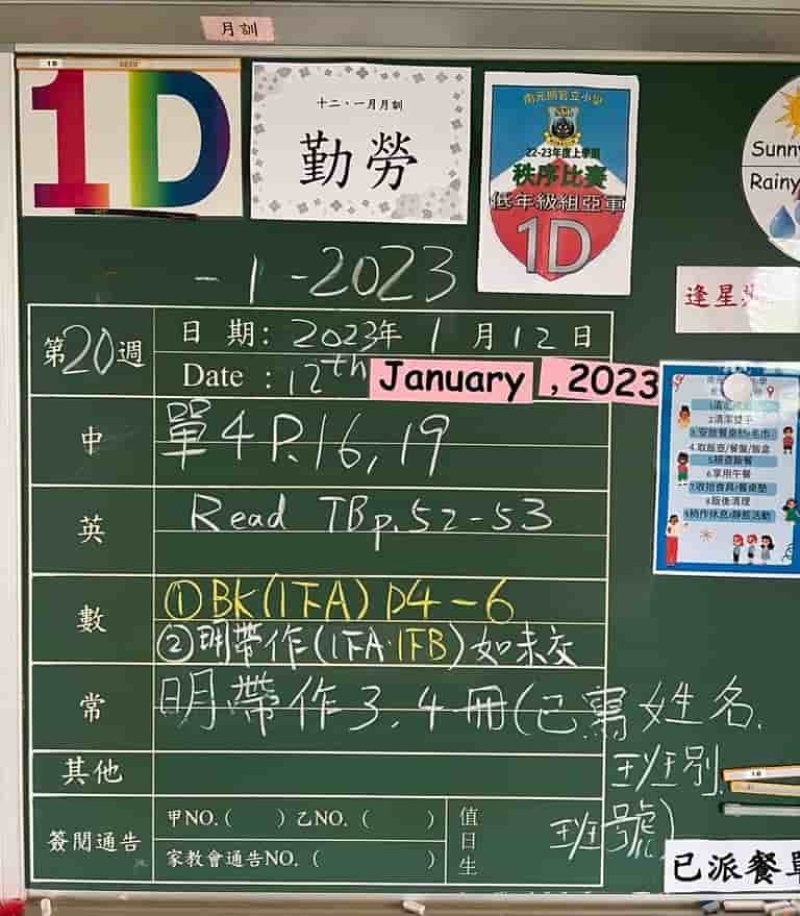 月訓
1D
十二、一月月訓
勤勞
南元朗官立小學
22-23年度上學期
秩序比賽
低年級組亞軍
1D
Sunny
Rainy
-1-2023
逢星
第20週
日期: 2023年1月12日
Date : 12th January, 2023
中
單4 P.16, 19
英
Read TB p.52-53
數
①BK(1下A) P4-6
②明帶作(1下A.1下B)如未交
常
明帶作3.4冊(已寫姓名.
班別.
班號)
其他
簽閱通告
甲NO.( ) 乙NO. ( )
家教會通告NO. ( )
值日生
2.清潔雙手
4.取飯壺/餐盤/飯盒
6.享用午餐
7.收拾食具/餐桌墊
8.飯後清理
已派餐單